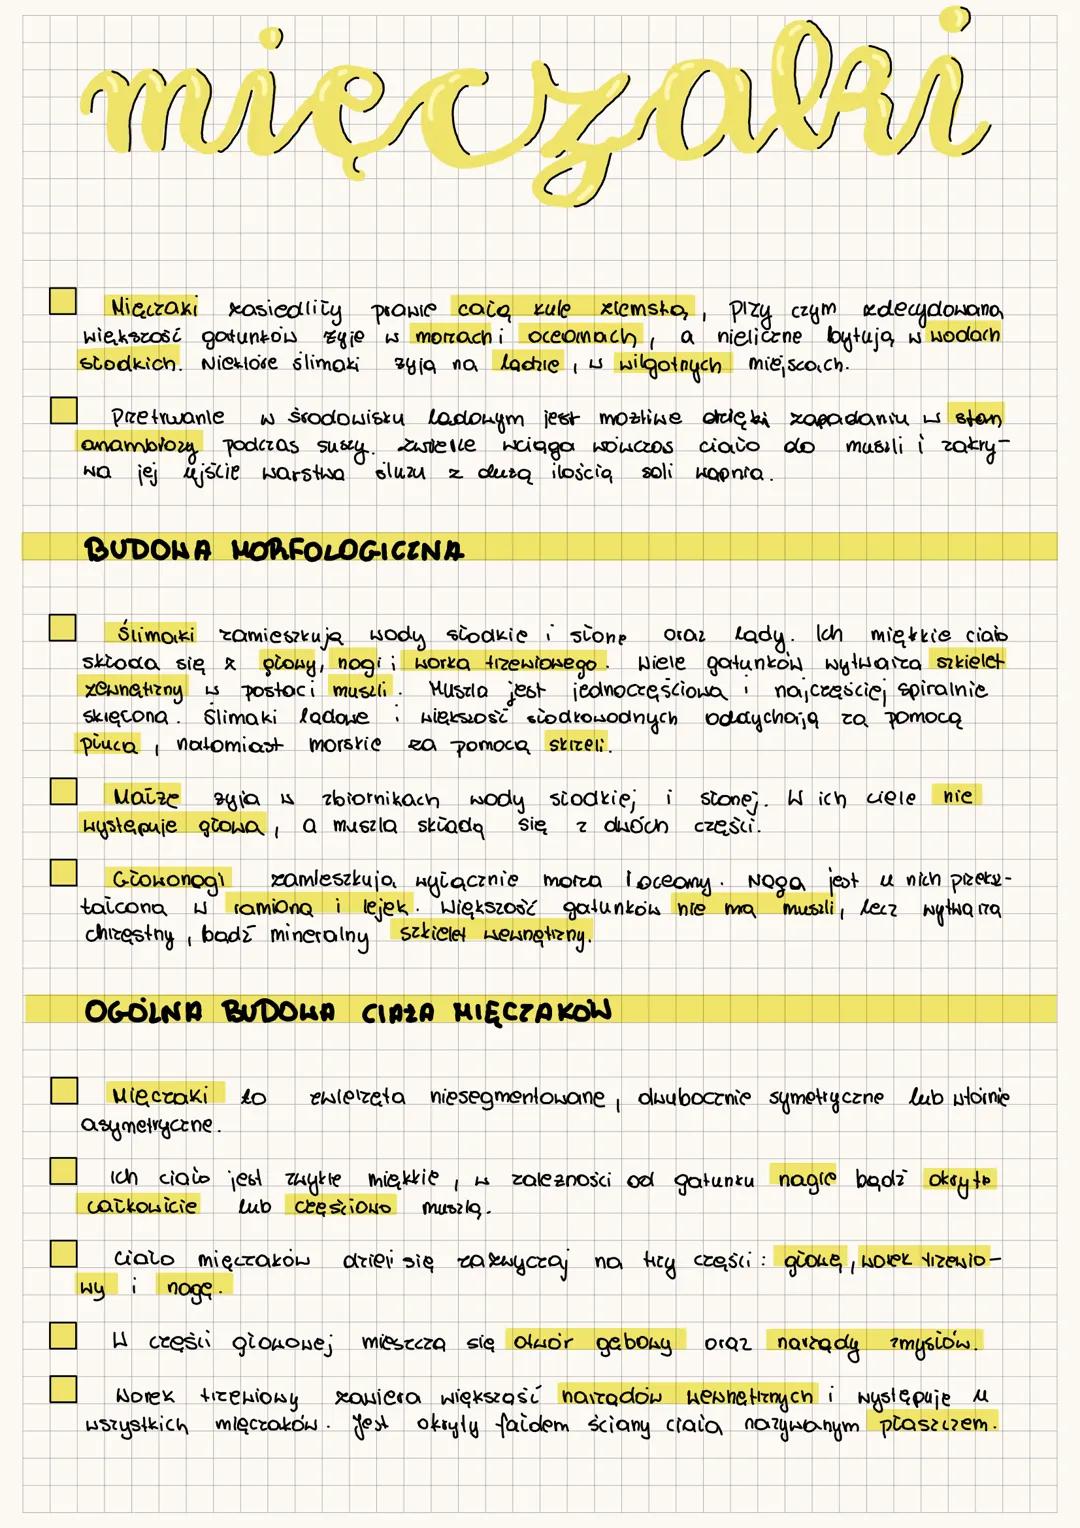 mięczaki
Mięczaki zasiedliły prawie całą kulę ziemską, przy czym zdecydowana
większość gatunków żyje w morzach i oceanach, a nieliczne bytują w wodach
słodkich. Niektóre ślimaki żyją na lądzie, w wilgotnych miejscach.
Przetrwanie w środowisku lądowym jest możliwe dzięki zapadaniu w stan
anambiozy podczas suszy. Zwierzę wciąga wówczas ciało do muszli i zakry-
wa jej ujście warstwą śluzu z dużą ilością soli wapnia.
BUDOWA MORFOLOGICZNA
Ślimaki zamieszkują wody słodkie i słone oraz lądy. Ich miękkie ciało
składa się z głowy, nogi i worka trzewiowego. Wiele gatunków wytwarza szkielet
zewnętrzny w postaci muszli. Muszla jest jednoczęściowa i najczęściej spiralnie
skręcona. Ślimaki lądowe i większość słodkowodnych oddychają za pomocą
płuca, natomiast morskie za pomocą skrzeli.
Małże żyją w zbiornikach wody słodkiej i słonej. W ich ciele nie
występuje głowa, a muszla składa się z dwóch części.
Głowonogi zamieszkują wyłącznie morza i oceany. Noga jest u nich przeksz-
tałcona w ramiona i lejek. Większość gatunków nie ma muszli, lecz wytwarza
chrzęstny, bądź mineralny szkielet wewnętrzny.
OGÓLNA BUDOWA CIAŁA MIĘCZAKÓW
Mięczaki to zwierzęta niesegmentowane, dwubocznie symetryczne lub wtórnie
asymetryczne.
Ich ciało jest zwykle miękkie, w zależności od gatunku nagie bądź okryte
całkowicie lub częściowo muszlą.
Ciało mięczaków dzieli się zazwyczaj na trzy części: głowę, worek trzewio-
wy i nogę.
W części głowowej mieszczą się otwór gębowy oraz narządy zmysłów.
Worek trzewiowy zawiera większość narządów wewnętrznych i występuje u
wszystkich mięczaków. Jest okryty fałdem ściany ciała nazywanym płaszczem.